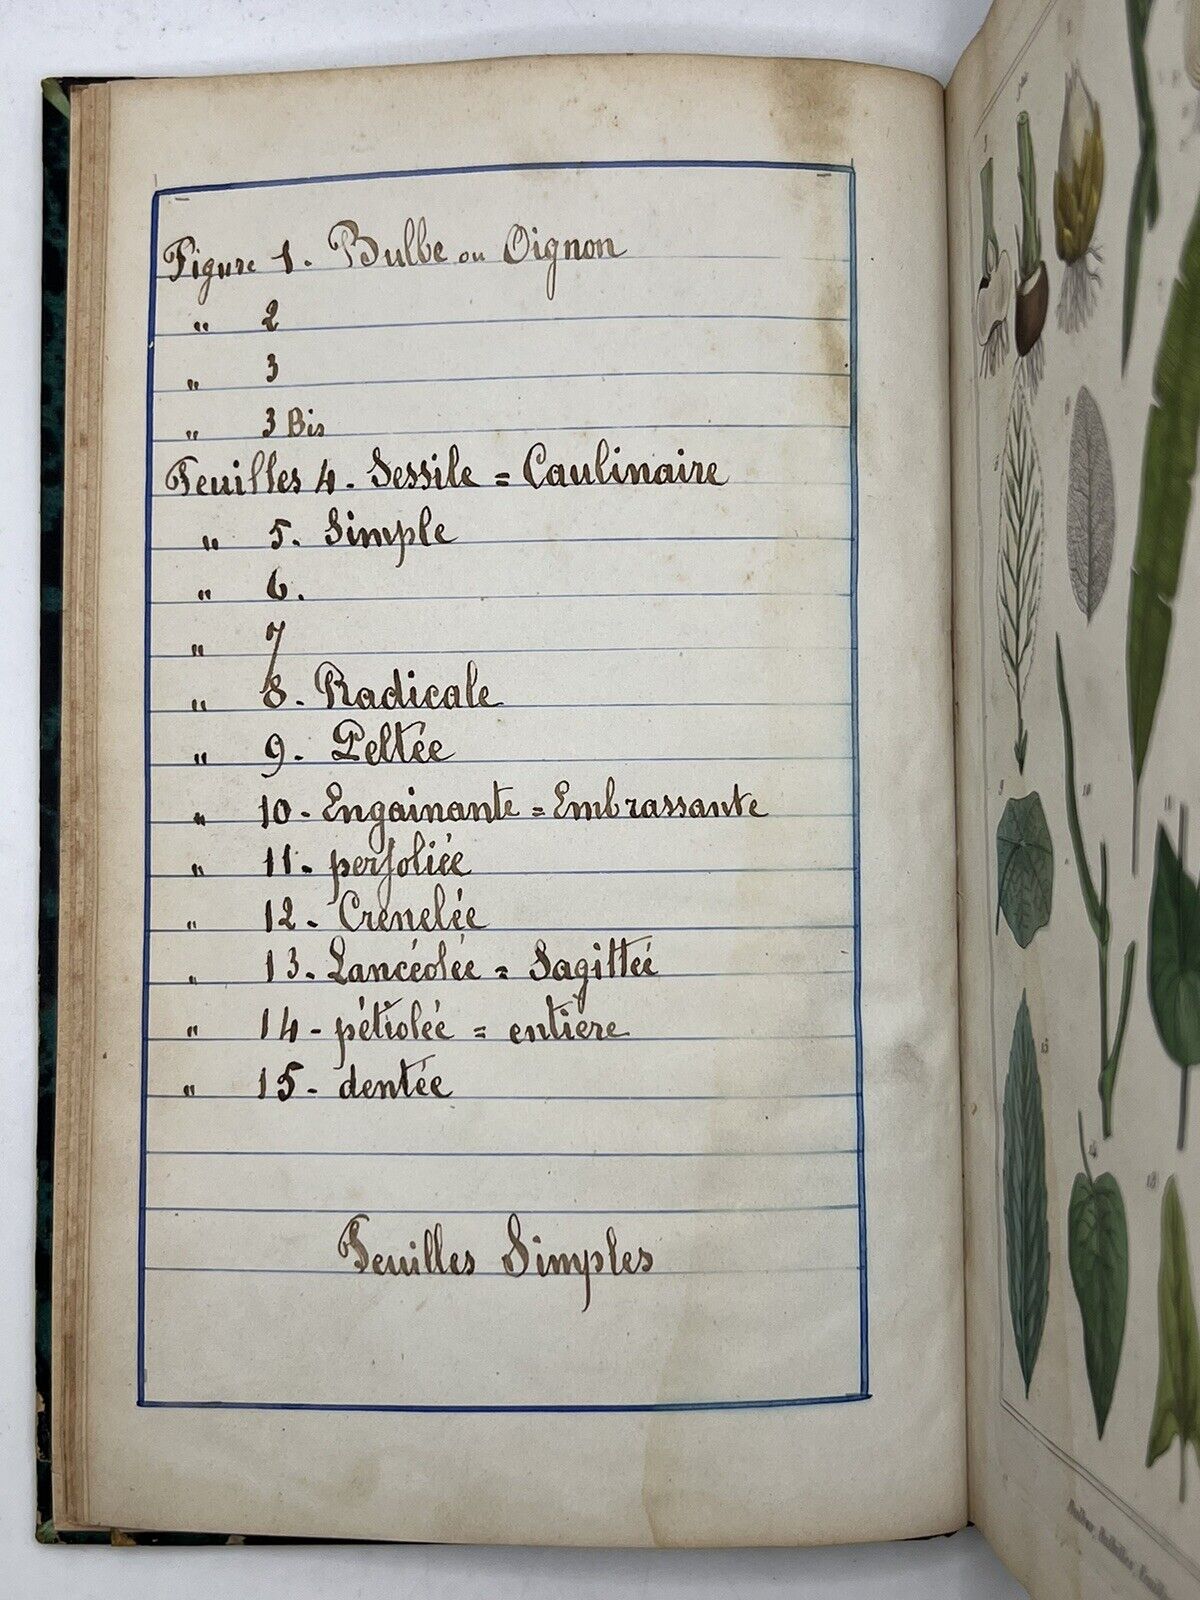 Figure 1. Bulbe ou Oignon
" 2
" 3
" 3 Bis
Feuilles 4. Sessile = Caulinaire
" 5. Simple
" 6.
" 7
" 8. Radicale
" 9. Peltée
" 10. Engainante = Embrassante
" 11. perfoliée
" 12. Crenelée
" 13. Lancéolée = Sagittée
" 14 - pétiolée = entière
" 15 - dentée
Feuilles Simples
9
10
11
13